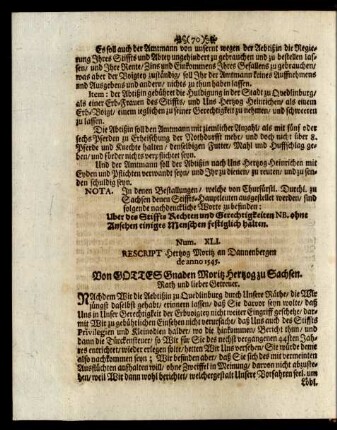 (70)
Es soll auch der Amtmann von unsernt wegen der Aebtißin die Regie-
rung Ihres Stiffts und Abtey ungehindert zu gebrauchen und zu bestellen las-
sen/ und Ihre Rente/ Zins und Einkommens Ihres Gefallens zu gebrauchen/
was aber der Voigtey zuständig/ soll Ihr der Amtmann keines Auffnehmens
und Ausgebens und andern/ nichts zu thun haben lassen.
Item: der Aebtißin gebühret die Huldigung in der Stadt zu Quedlinburg/
als einer Erb-Frauen des Stiffts/ und Uns Hertzog Heinrichen/ als einem
Erb-Voigt/ einem ieglichen zu seiner Gerechtigkeit zu nehmen/ und schweren
zu lassen.
Die Aebtißin soll den Amtmann mit ziemlicher Anzahl/ als mit fünf oder
sechs Pferden zu Erheischung der Nothdurfft mehr/ und doch nicht über 8.
Pferde und Knechte halten/ denselbigen Futter/ Mahl und Huffschlag ge-
ben/ und fürder nichts verpflichtet seyn.
Und der Amtmann soll der Abtißin nach Uns Hertzog Heinrichen mit
Eyden und Pflichten verwandt seyn/ und getreulich zu rathen/ und zu
schuldig seyn.
NOTA. In denen Bestallungen/ welche von Churfürstl. Durchl. zu
Sachsen denen Stiffts-Hauptleuten ausgestellet werden/ sind
folgende nachdenckliche Worte zu befinden:
Uber des Stiffts Rechten und Gerechtigkeiten NB. ohne
Ansehen einiges Menschen festiglich halten.
Num. XLI.
RESCRIPT Hertzog Moritz an Dannenbergen
de anno 1545.
Von GOTTES Gnaden Moritz Hertzog zu Sachsen.
Rath und lieber Getreuer.
NAchdem Wir die Aebtißin zu Quedlinburg durch Unsere Räthe/ die Wir
jüngst daselbst gehabt/ erinnern lassen/ daß Sie darvor seyn wolte/ daß
Uns in Unser Gerechtigkeit der Erbvoigtey nicht weiter Eingriff geschehe/ dar-
mit Wir zu gebührlichen Einsehen nicht verursachet/ daß Uns auch des Stiffts
Privilegien und Kleinodien halber/ wo die hinkommen/ Bericht thun/ und
dann die Türckensteuer/ so Wir für Sie des nechst vergangenen 42sten Jah-
res entrichtet/ wieder erlegen solte/ hätten Wir Uns versehen/ Sie würde deme
also nachkommen seyn; Wir befinden aber/ daß Sie sich des mit vermeinten
Ausflüchten aufhalten will/ ohne Zweiffel in Meinung/ darvon nicht abzuste-
hen/ weil Wir dann wohl berichtet/ welchergestalt Unsere Vorfahren seel. um
Löbl.